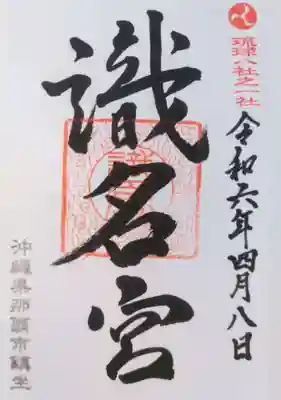 琉球八社之一社
令和六年四月八日
識名宮
沖縄県那覇市鎮座